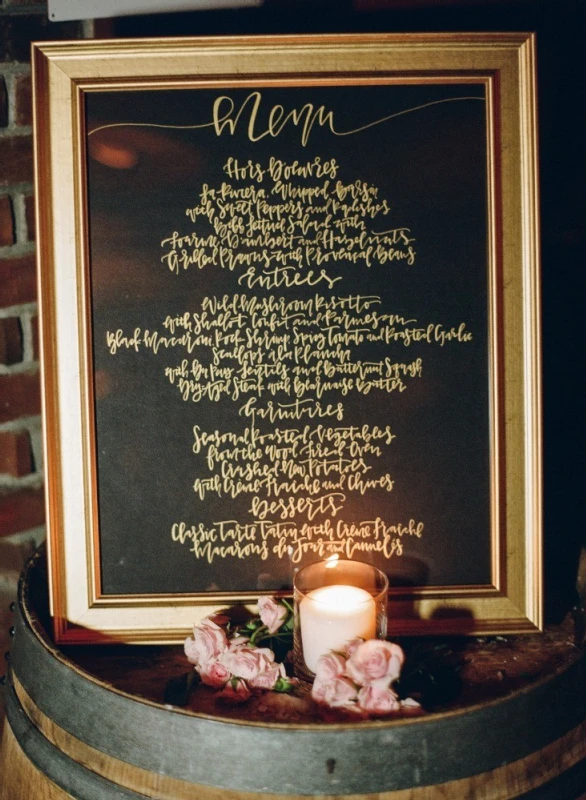 Menu
Hors D'oeuvres
La Riviera, Whipped
with Sweet Peppers and Radishes
Bibb Lettuce Salad with
Fourme D'Ambert and Hazelnuts
Grilled Prawns with Provencal Beans
Entrees
Wild Mushroom Risotto
with Shallot Confit and Parmesan
Black Macaroni, Rock Shrimp, Spicy Tomato and Roasted Garlic
Scallops a la Plancha
with Du Puy Lentils and Butternut Squash
Dry Aged Steak with Bearnaise Butter
Garnitures
Seasonal Roasted Vegetables
from the Wood Fired Oven
Crushed New Potatoes
with Crème Fraiche and Chives
Desserts
Classic Tarte Tatin with Crème Fraiche
Macarons du Jour and Canneles